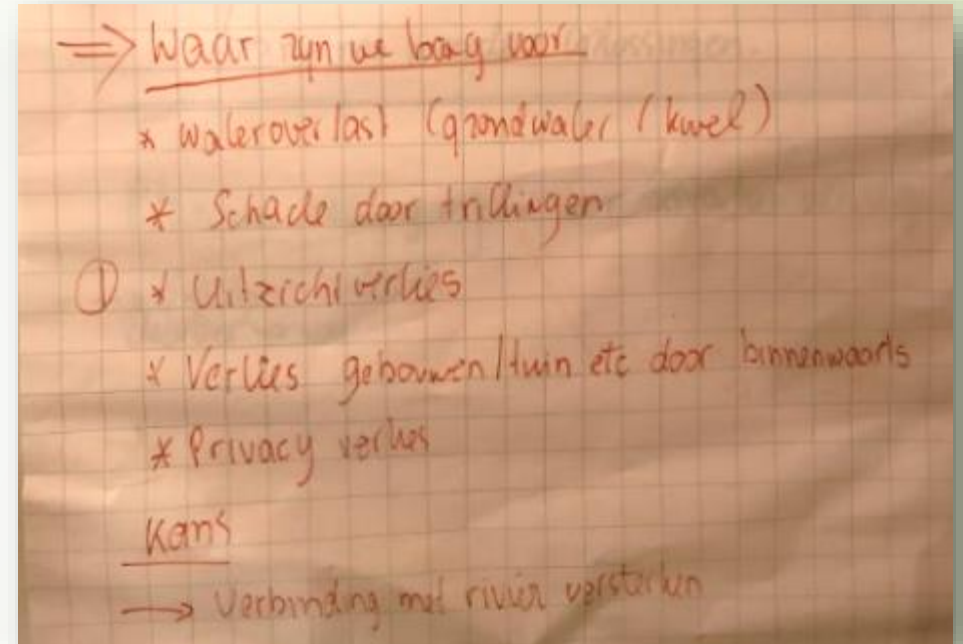 ⇒ Waar zijn we bang voor
* wateroverlast (grondwater / kwel)
* Schade door trillingen
① * Uitzichtverlies
* Verlies gebouwen/tuin etc door binnenwaarts
* Privacy verlies
Kans
→ Verbinding met rivier versterken